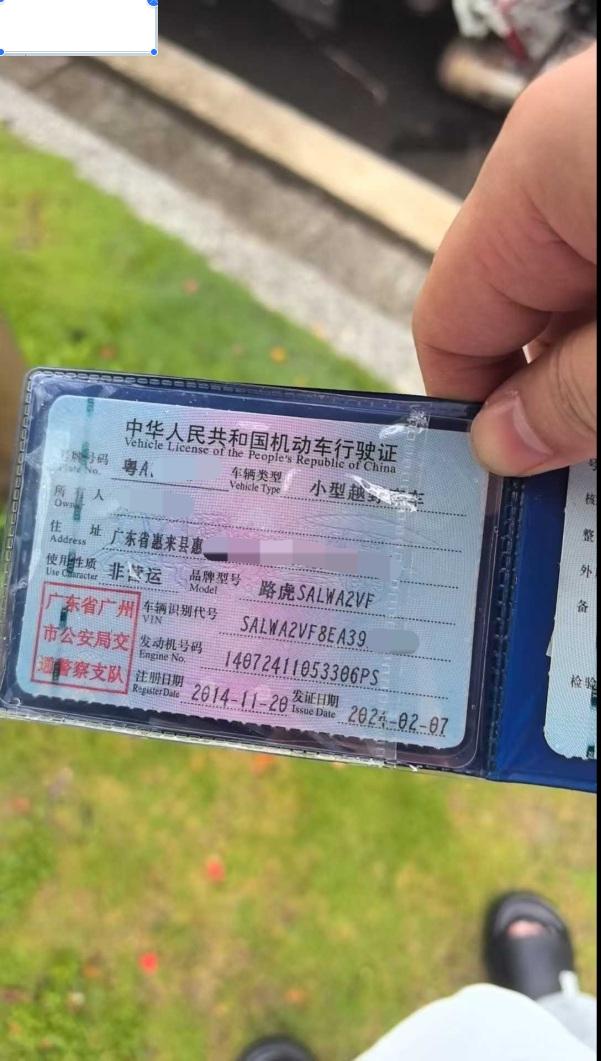 中华人民共和国机动车行驶证
Vehicle License of the People's Republic of China
号牌号码 粤A. 车辆类型 小型越野 车
Plate No. Vehicle Type
所有人
Owner
住址 广东省惠来县惠
Address
使用性质 非营运 品牌型号 路虎SALWA2VF
Use Character Model
广东省广州
市公安局交
通警察支队
车辆识别代号 SALWA2VF8EA39
VIN
发动机号码 14072411053306PS
Engine No.
注册日期 2014-11-20 发证日期 2024-02-07
Register Date Issue Date
号
核
整
外
备
检验